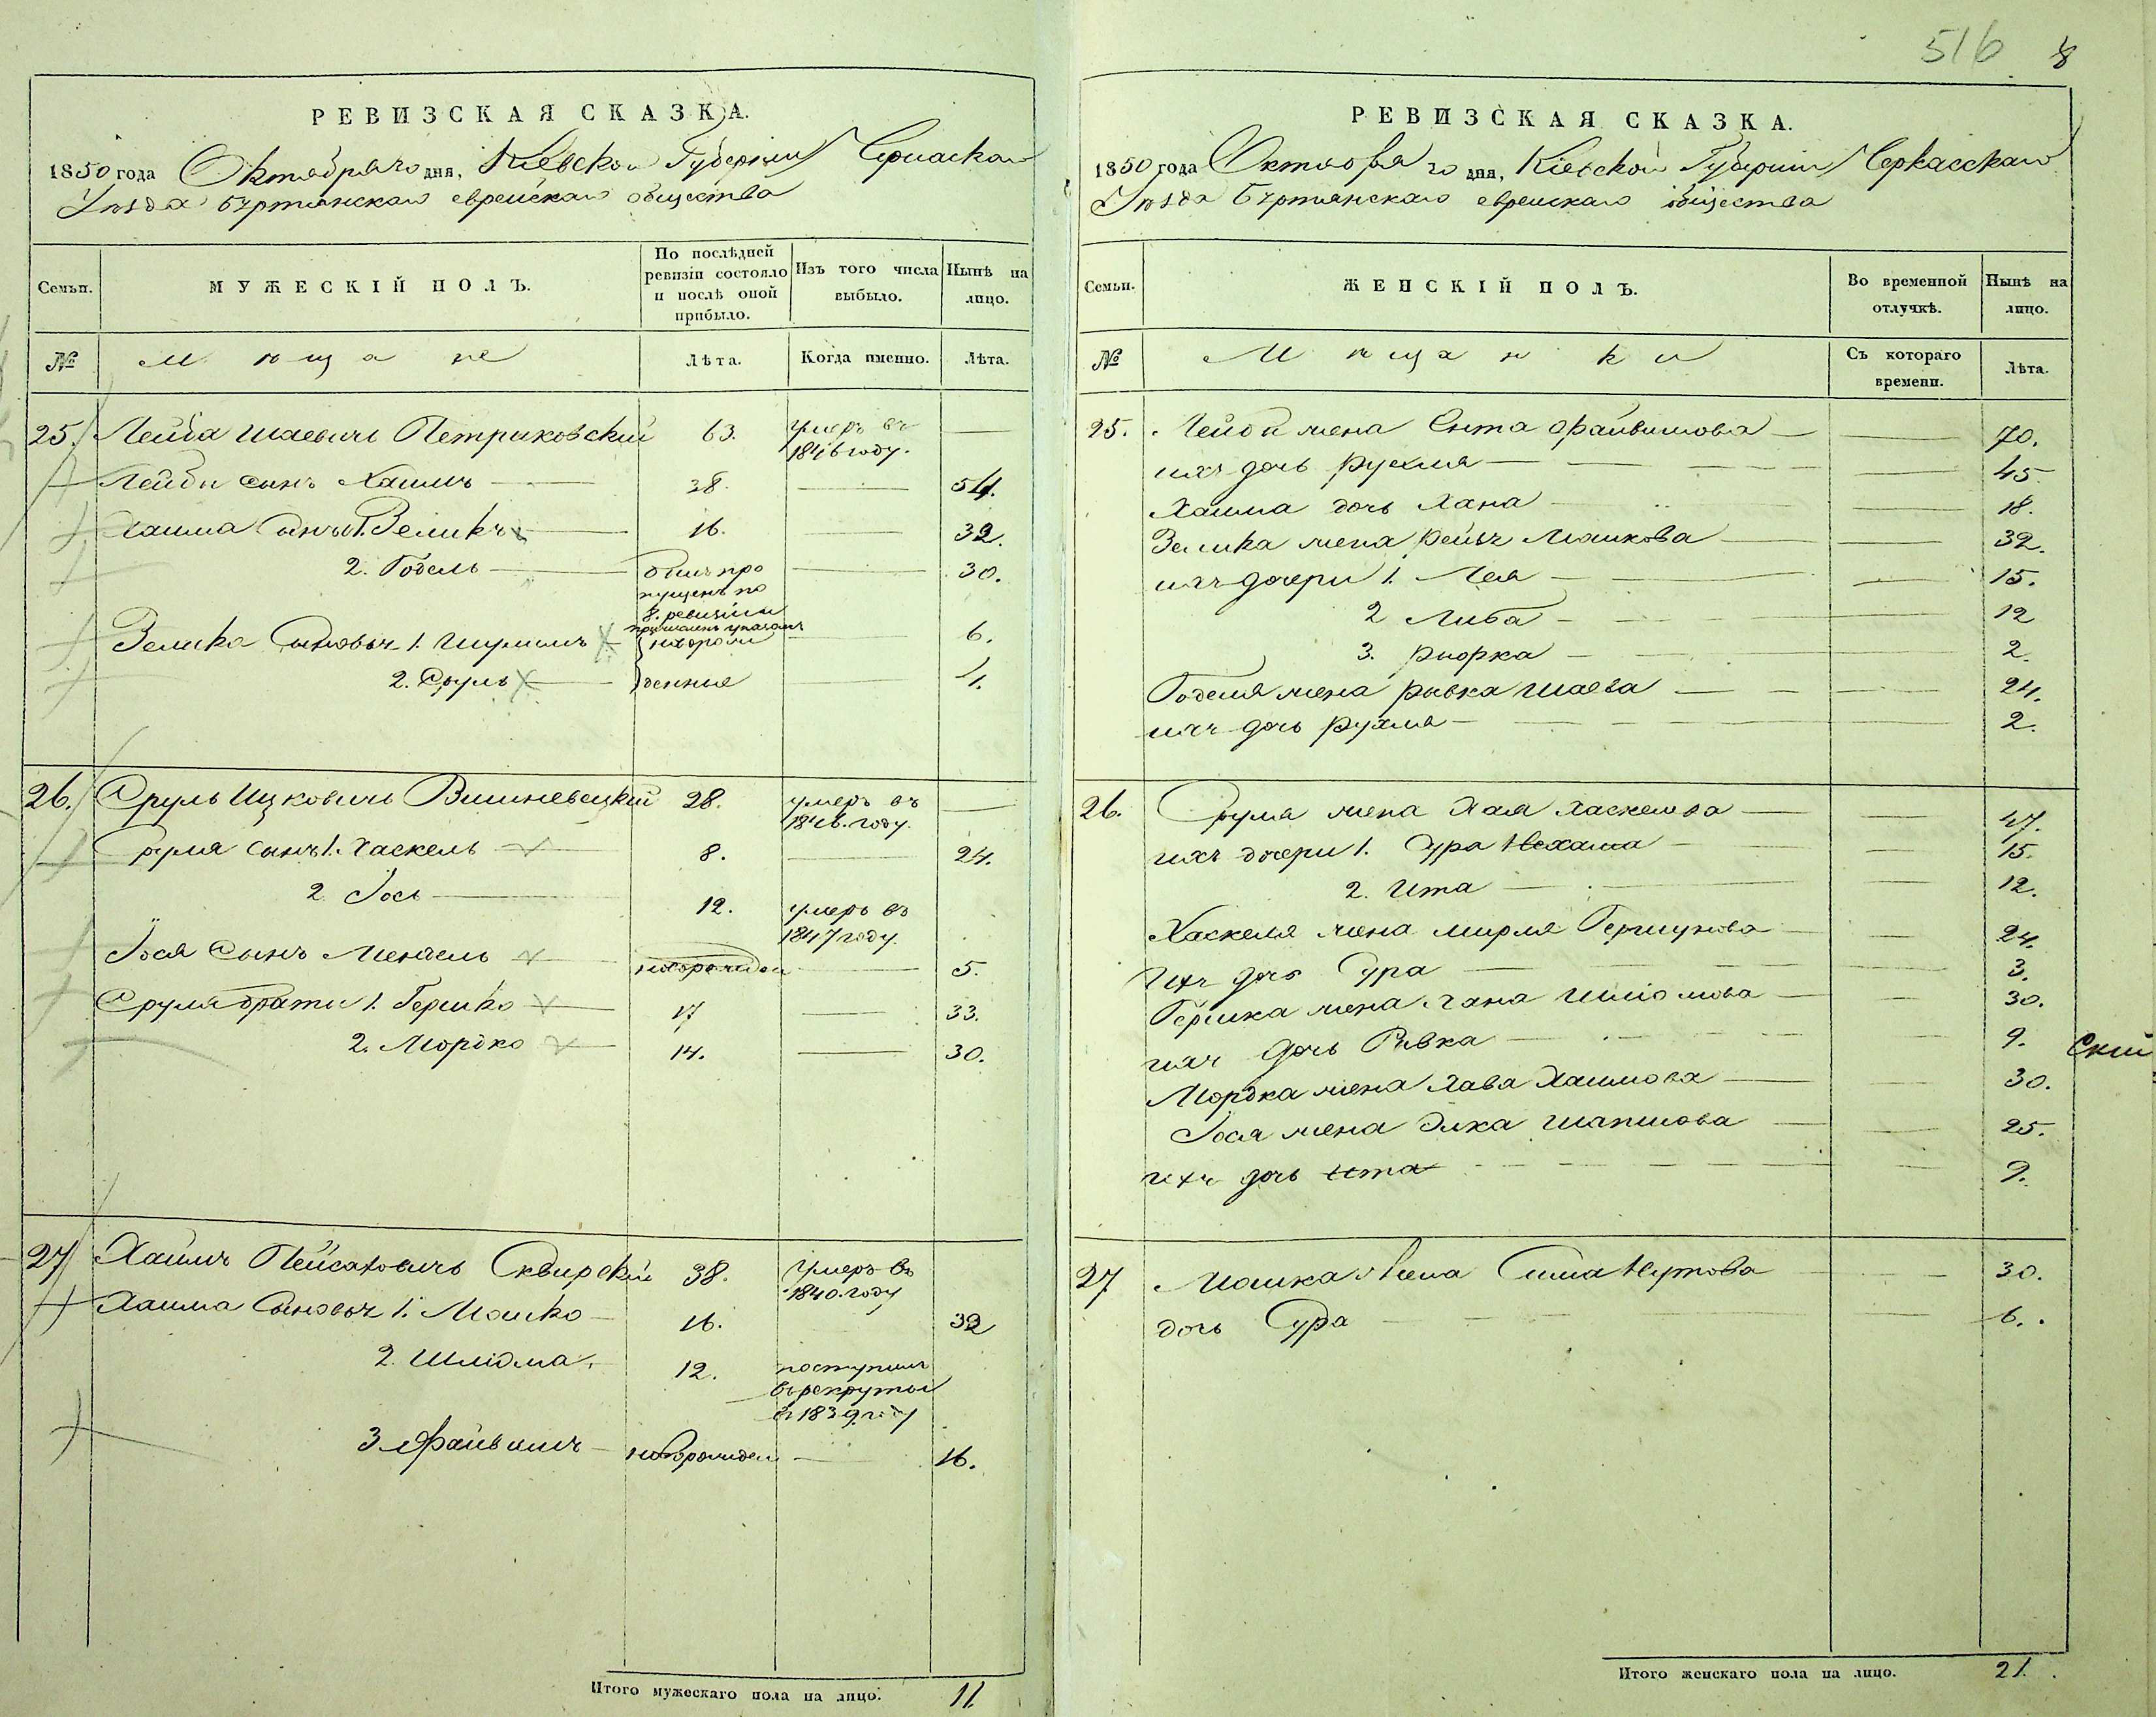 516 8
РЕВИЗСКАЯ СКАЗКА.
1850 года Октября го дня, Кіевской Губерніи Черкаскаго
Уѣзда Бѣртянскаго еврейскаго общества
Семьи.
МУЖЕСКІЙ ПОЛЪ.
По послѣдней ревизіи состояло и послѣ оной прибыло.
Изъ того числа выбыло.
Нынѣ на лицо.
№ Мѣщане Лѣта. Когда именно. Лѣта.
25. Лейба Шаевичъ Петриковский 63. умеръ въ 1846 году. —
Лейби сынъ Хаимъ 38. — 54.
Хаима Сынъ 1. Зеликъ 16. — 32.
2. Годель былъ пропущенъ по 8. ревизіи — 30.
Зелика Сыновья 1. Шулимъ 6.
2. Сруль 1.
26. Сруль Ицковичъ Вишневецкий 28. умеръ въ 1846. году. —
Сруля сынъ 1. Хаскель 8. — 24.
2. Іось 12. умеръ въ 1847 году.
Іося Сынъ Мендель новорожден 5.
Сруля братья 1. Гершко 17 — 33.
2. Мордко 14. — 30.
27 Хаимъ Пейсаховичъ Сквирский 38. Умеръ въ 1840. году
Хаима Сыновья 1. Мошко 16. 32
2. Шліома. 12. поступилъ въ рекруты въ 1839 году
3 Файвишъ новорожден — 16.
Итого мужескаго пола на лицо. 11.
РЕВИЗСКАЯ СКАЗКА.
1850 года Октября го дня, Кіевской Губерніи Черкасскаго
Уѣзда Бѣртянскаго еврейскаго общества
Семьи.
ЖЕНСКІЙ ПОЛЪ.
Во временной отлучкѣ.
Нынѣ на лицо.
№ Мѣщанки Съ котораго времени. Лѣта.
25. Лейби жена Ента Файвишова 70.
ихъ дочь Рухля 45
Хаима дочь Хана 18.
Зелика жена Рейзя Мошкова 32.
ихъ дочери 1. Лея 15.
2 Либа 12
3. Дворка 2.
Годеля жена Рывка Шаева 24.
ихъ дочь Рухля 2.
26. Сруля жена Хая Хаскелева 47.
ихъ дочери 1. Сура Нехама 15.
2. Ита 12.
Хаскеля жена Мирля Гершунова 24.
Ихъ дочь Сура 3.
Гершка жена Хана Шліомова 30.
ихъ дочь Ривка 9.
Мордка жена Хава Хаимова 30.
Іося жена Элка Шапшова 25.
ихъ дочь Ита 9.
ский
27 Мошка Жена Сима Нутова 30.
дочь Сура 6.
Итого женскаго пола на лицо. 21.